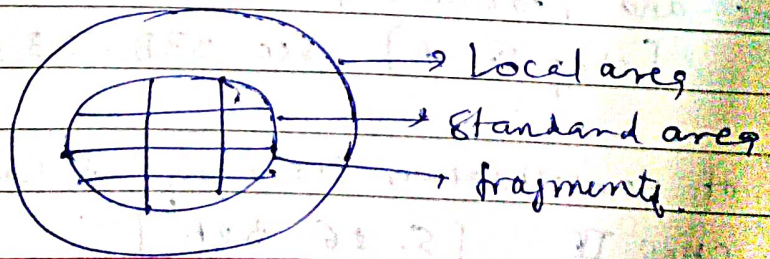 Local area
Standard area
fragments